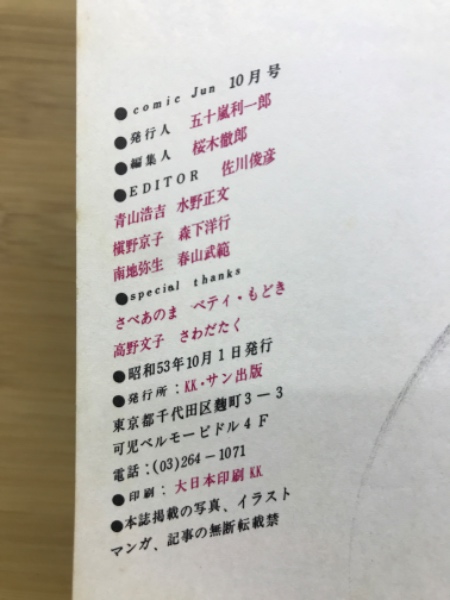 ●comic Jun 10月号
●発行人 五十嵐利一郎
●編集人 桜木徹郎
●EDITOR 佐川俊彦
青山浩吉 水野正文
槇野京子 森下洋行
南地弥生 春山武範
●special thanks
さべあのま ベティ・もどき
高野文子 さわだたく
●昭和53年10月1日発行
●発行所:KK・サン出版
東京都千代田区麹町3－3
可児ベルモービドル4F
電話:(03)264－1071
●印刷:大日本印刷KK
●本誌掲載の写真、イラスト
マンガ、記事の無断転載禁